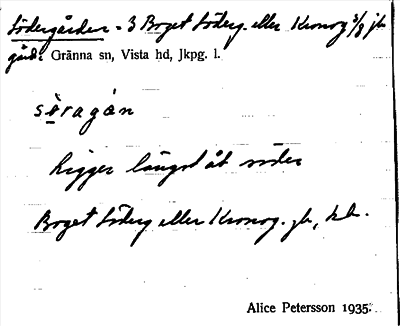 Södergården = 3 Borget Söderg. eller Kronog 3/8 jb
gård: Gränna sn, Vista hd, Jkpg. l.
söragån
ligger längst åt söder
Borget Söderg eller Kronog. jb, kb.
Alice Petersson 1935.